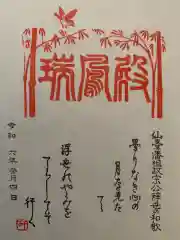 瑞鳳殿
仙臺藩祖政宗公辞世の和歌
曇りなき心の
月を先たて
て
浮世のやみを
てらしてそ
行く
令和六年 月四日